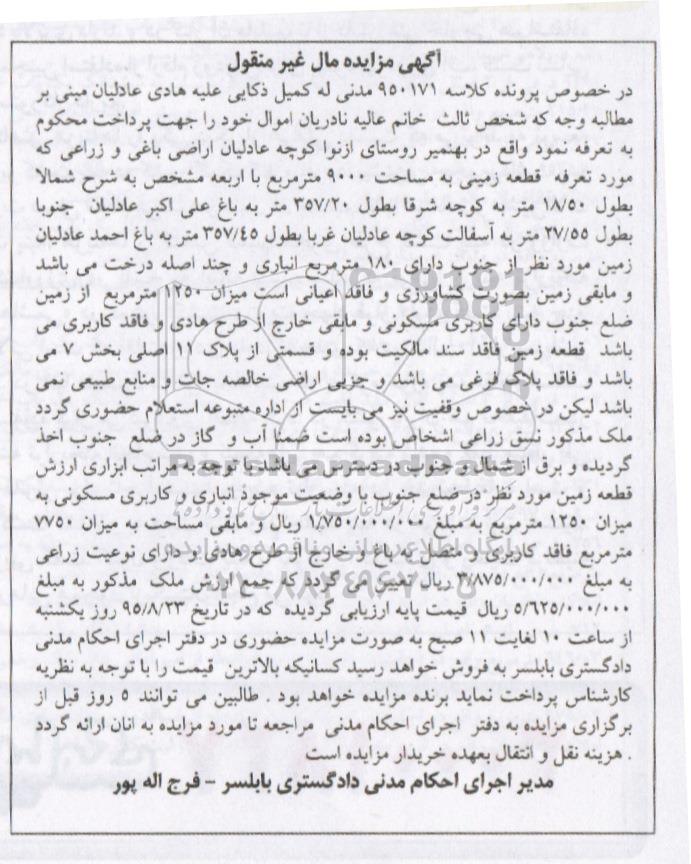 آگهی مزایده مال غیر منقول
در خصوص پرونده کلاسه ۹۵۰۱۷۱ مدنی له کمیل ذکایی علیه هادی عادلیان مبنی بر
مطالبه وجه که شخص ثالث خانم عالیه نادریان اموال خود را جهت پرداخت محکوم
به تعرفه نمود واقع در بهنمیر روستای ازنوا کوچه عادلیان اراضی باغی و زراعی که
مورد تعرفه قطعه زمینی به مساحت ۹۰۰۰ مترمربع با اربعه مشخص به شرح شمالا
بطول ۱۸/۵۰ متر به کوچه شرقا بطول ۳۵۷/۲۰ متر به باغ علی اکبر عادلیان جنوبا
بطول ۲۷/۵۵ متر به آسفالت کوچه عادلیان غربا بطول ۳۵۷/۴۵ متر به باغ احمد عادلیان
زمین مورد نظر از جنوب دارای ۱۸۰ مترمربع انباری و چند اصله درخت می باشد
و مابقی زمین بصورت کشاورزی و فاقد اعیانی است میزان ۱۲۵۰ مترمربع از زمین
ضلع جنوب دارای کاربری مسکونی و مابقی خارج از طرح هادی و فاقد کاربری می
باشد قطعه زمین فاقد سند مالکیت بوده و قسمتی از پلاک ۱۱ اصلی بخش ۷ می
باشد و فاقد پلاک فرعی می باشد و جزیی اراضی خالصه جات و منابع طبیعی نمی
باشد لیکن در خصوص وقفیت نیز می بایست از اداره متبوعه استعلام حضوری گردد
ملک مذکور نسق زراعی اشخاص بوده است ضمنا آب و گاز در ضلع جنوب اخذ
گردیده و برق از شمال و جنوب در دسترس می باشد با توجه به مراتب ابزاری ارزش
قطعه زمین مورد نظر در ضلع جنوب با وضعیت موجود انباری و کاربری مسکونی به
میزان ۱۲۵۰ مترمربع به مبلغ ۱/۷۵۰/۰۰۰/۰۰۰ ریال و مابقی مساحت به میزان ۷۷۵۰
مترمربع فاقد کاربری و متصل به باغ و خارج از طرح هادی و دارای نوعیت زراعی
به مبلغ ۳/۸۷۵/۰۰۰/۰۰۰ ریال تعیین می گردد که جمع ارزش ملک مذکور به مبلغ
۵/۶۲۵/۰۰۰/۰۰۰ ریال قیمت پایه ارزیابی گردیده که در تاریخ ۹۵/۸/۲۳ روز یکشنبه
از ساعت ۱۰ لغایت ۱۱ صبح به صورت مزایده حضوری در دفتر اجرای احکام مدنی
دادگستری بابلسر به فروش خواهد رسید کسانیکه بالاترین قیمت را با توجه به نظریه
کارشناس پرداخت نماید برنده مزایده خواهد بود . طالبین می توانند ۵ روز قبل از
برگزاری مزایده به دفتر اجرای احکام مدنی مراجعه تا مورد مزایده به انان ارائه گردد
. هزینه نقل و انتقال بعهده خریدار مزایده است
مدیر اجرای احکام مدنی دادگستری بابلسر - فرج اله پور